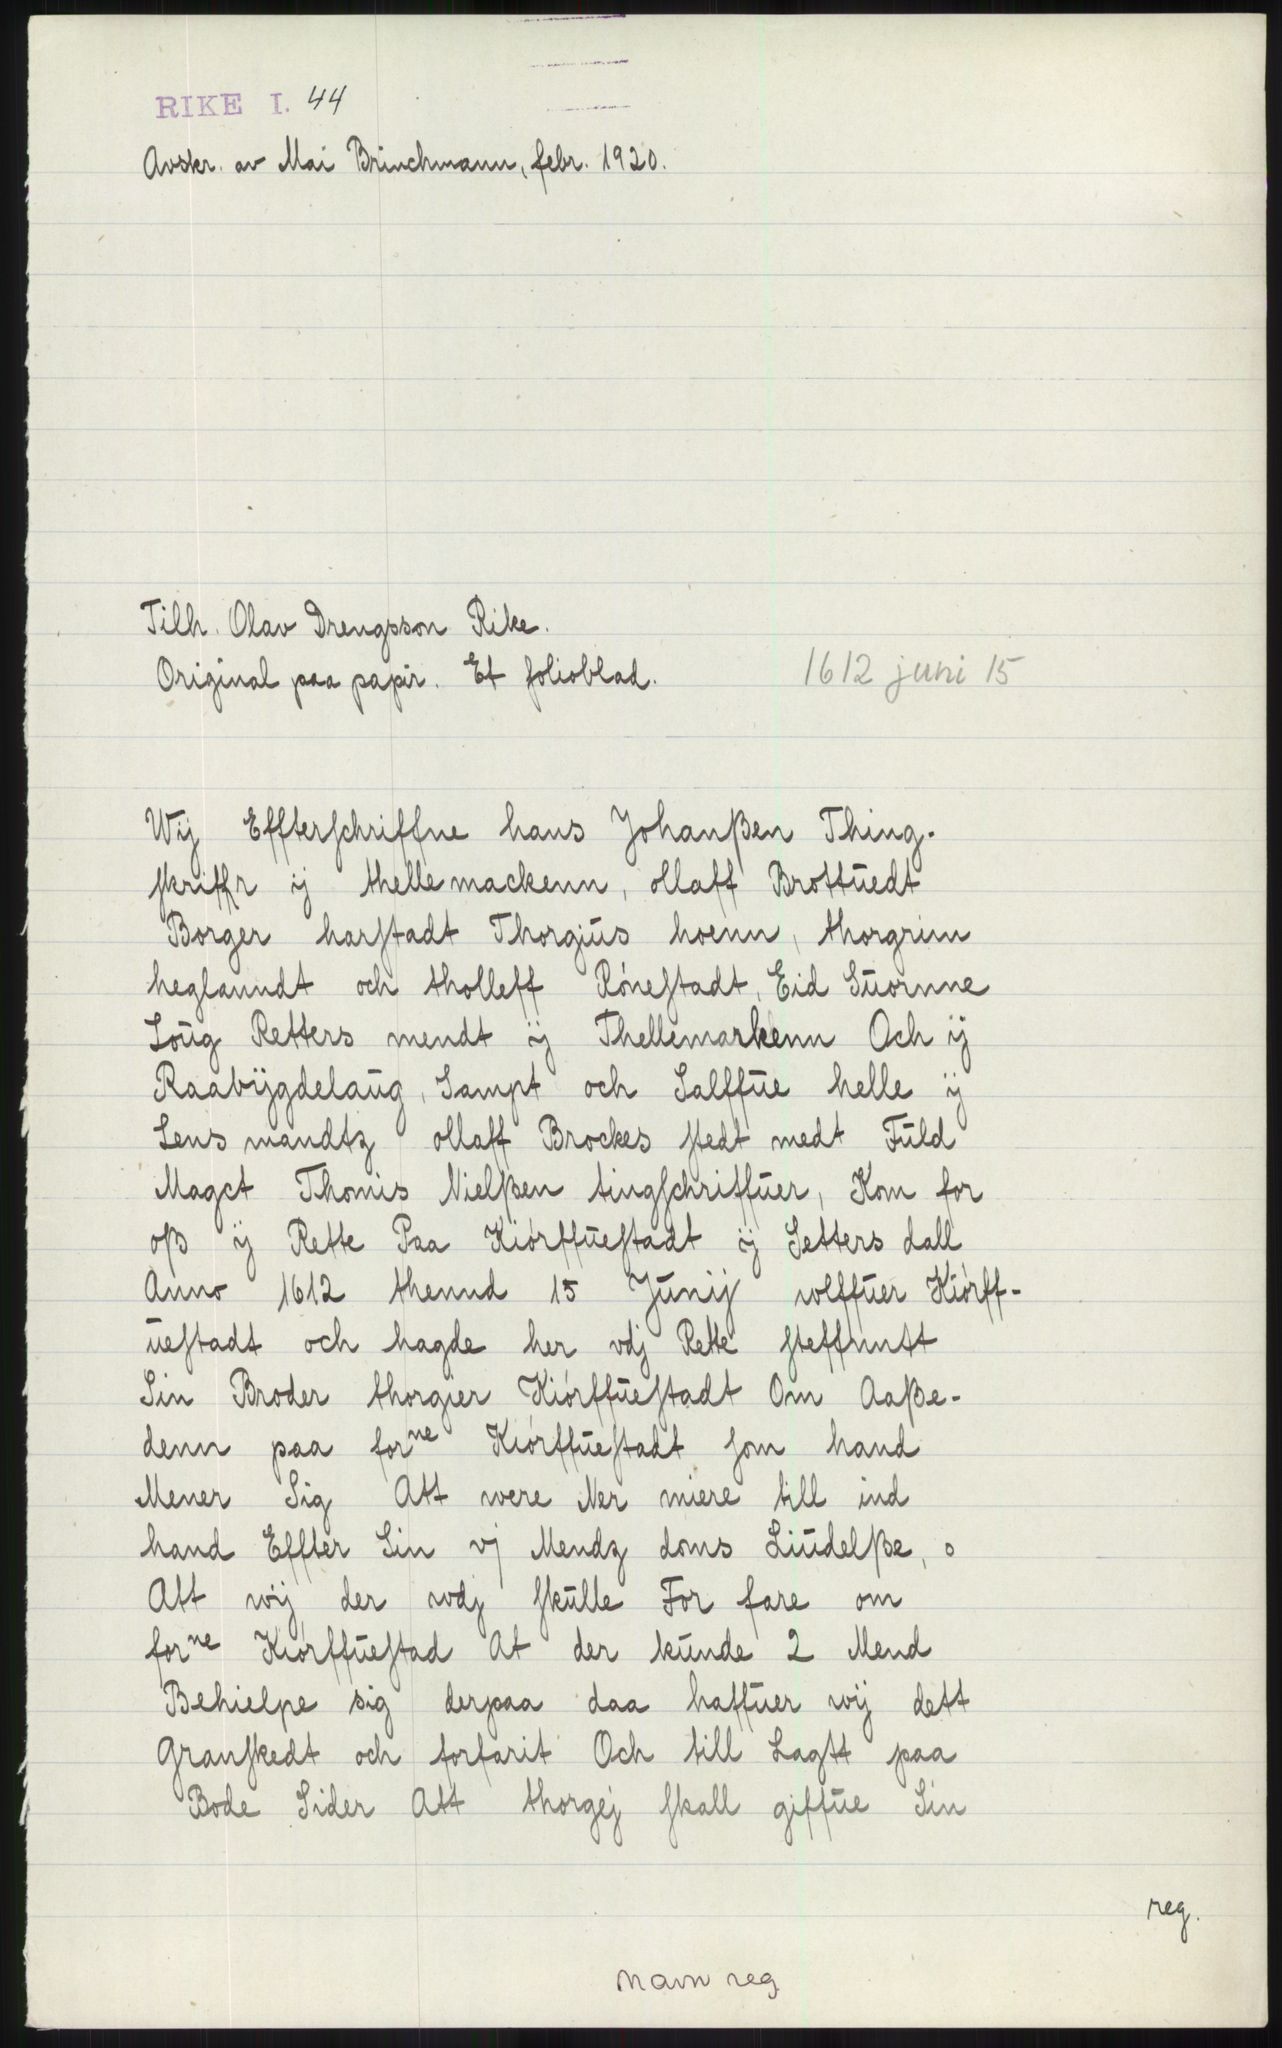 RIKE I. 44
Avskr. av Mai Brinchmann, febr. 1920.
Tilh. Olav Drengsson Rike.
Original paa papir. Et folioblad.
1612 juni 15
Wij Effterſchriffne hans Johanßen Thing-
ſkriffr ij thellemackenn, ollaff Brottuedt
Borger harſtadt Thorgiūs hoenn, thorgrim
heglanndt och tholleff Róneſtadt, Eid Sūornne
Loūg Retters mendt ij Thellemarkenn Och ij
Raabijgdelaūg, Sampt och Salffūe helle ij
Lens mandtz ollaff Brockes ſtedt medt Fūld
Magct Thomis Nielßen tingſchriffūer, Kom for
oß ij Rette Paa Kiórffūeſtadt ij Setters dall
Anno 1612 thennd 15 Jūnij wlffūer Kiórff-
ūeſtadt och hagde her vdj Rette ſteffnntt
Sin Broder thorgier Kiórffūeſtadt Om Aaße-
denn paa forne Kiórffūeſtadt ſom hand
Mener Sig Att were Ner miere till ind
hand Effter Sin vj Mendz doms Liūdelße, o
Att wij der wdj ſkūlle For fare om
forne Kiórffūeſtad at der kūnde 2 Mend
Behielpe sig derpaa daa haffūer wij dett
Granſkedt och forfarit Och till Lagtt paa
Bode Sider Att thorgej ſkall giffūe Sin
reg.
navn reg